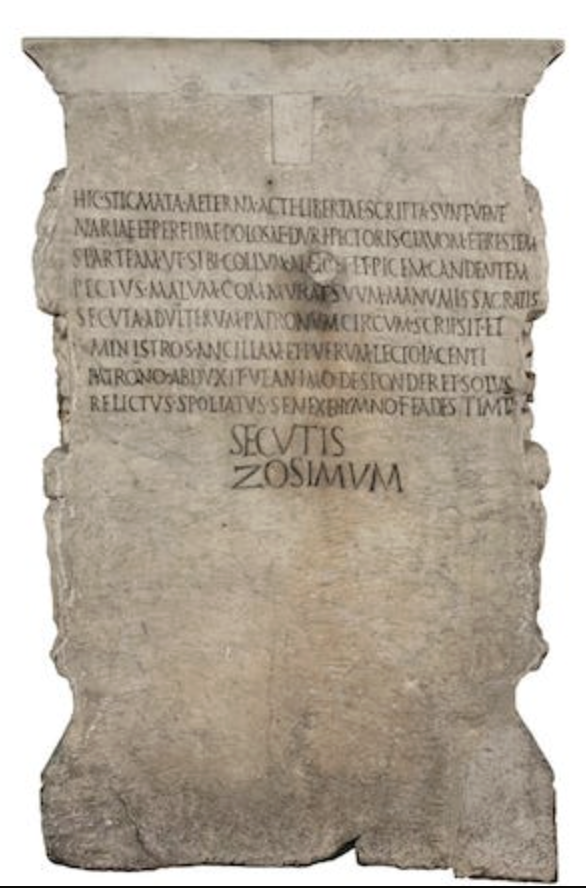 HIC·STIGMATA·AETERNA·ACTE·LIBERTAE·SCRIPTA·SVNT·VENE
NARIAE·ET·PERFIDAE·DOLOSAE·DVRI·PECTORIS·CLAVOM·ET·RESTEM
SPARTEAM·VT·SIBI·COLLVM·ALLIGET·ET·PICEM·CANDENTEM
PECTVS·MALVM·COMMVRAT·SVVM·MANVMISSA·GRATIS
SECVTA·ADVLTERVM·PATRONVM·CIRCVMSCRIPSIT·ET
MINISTROS·ANCILLAM·ET·PVERVM·LECTO·IACENTI
PATRONO·ABDVXIT·VT·ANIMO·DESPONDERET·SOLVS
RELICTVS·SPOLIATVS·SENEX·E·HYMNO
SECVTIS
ZOSIMVM